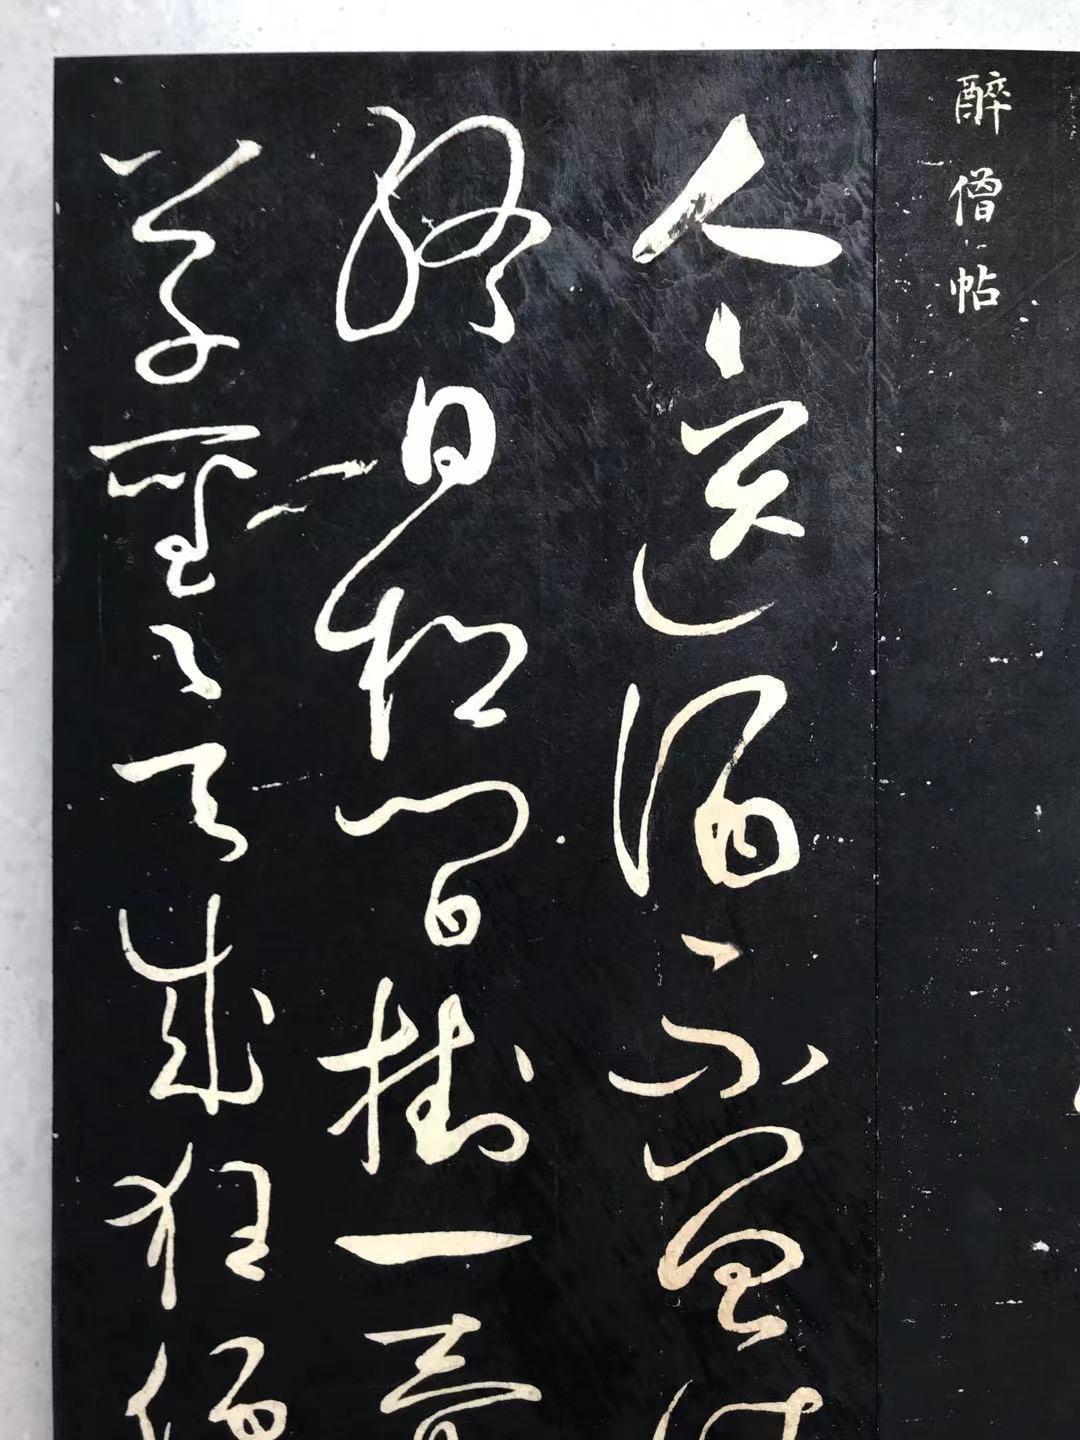 醉僧帖
人々送酒不曾
終日松間掛一壺
草聖欲成狂便